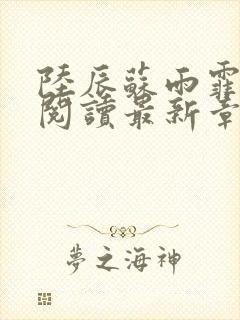 陸辰蘇雨霏
閱讀最新章
夢之海神